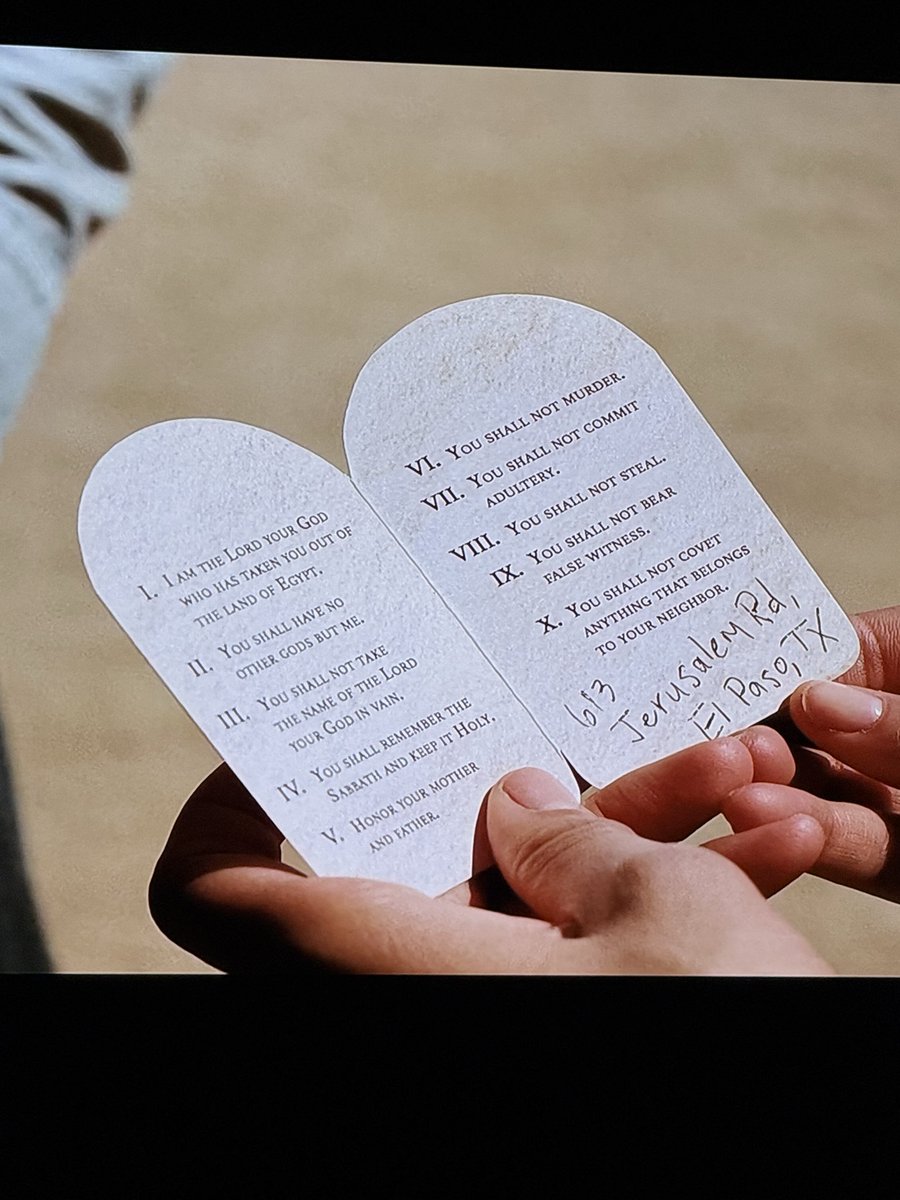 I. I am the Lord your God
who has taken you out of
the land of Egypt.
II. You shall have no
other gods but me.
III. You shall not take
the name of the Lord
your God in vain.
IV. You shall remember the
Sabbath and keep it Holy.
V. Honor your mother
and father.
VI. You shall not murder.
VII. You shall not commit
adultery.
VIII. You shall not steal.
IX. You shall not bear
false witness.
X. You shall not covet
anything that belongs
to your neighbor.
613
Jerusalem Rd,
El Paso, TX